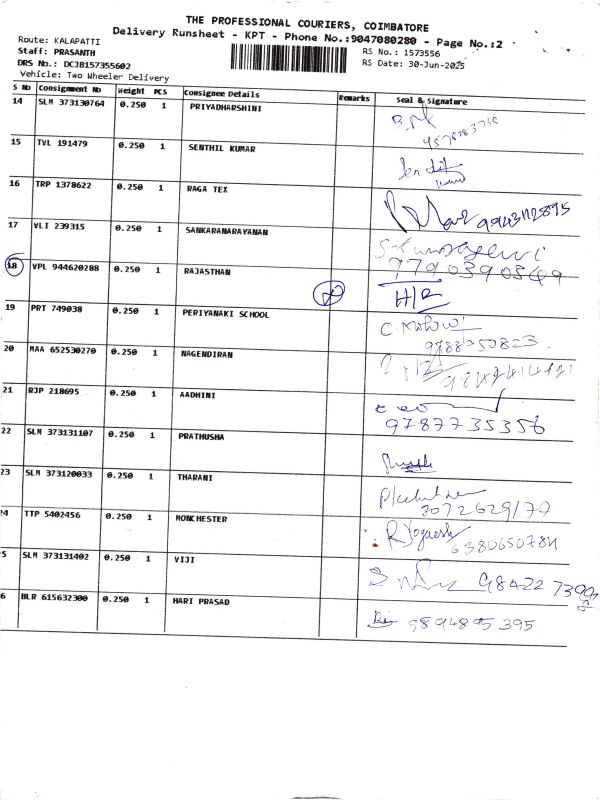 THE PROFESSIONAL COURIERS, COIMBATORE
Delivery Runsheet - KPT - Phone No.:9047080280 - Page No.:2
Route: KALAPATTI
RS No.: 1573556
Staff: PRASANTH
RS Date: 30-Jun-2025
DRS No.: DCJB157355602
Vehicle: Two Wheeler Delivery
S No Consignment No Weight PCS Consignee Details Remarks Seal & Signature
14 SLM 373130764 0.250 1 PRIYADHARSHINI
15 TVL 191479 0.250 1 SENTHIL KUMAR
16 TRP 1378622 0.250 1 RAGA TEX
17 VLI 239315 0.250 1 SANKARANARAYANAN
7790390549
18 VPL 944620288 0.250 1 RAJASTHAN H/R
19 PRT 749038 0.250 1 PERIYANAKI SCHOOL
20 MAA 652530270 0.250 1 NAGENDIRAN
21 RJP 218695 0.250 1 AADHINI
9787735356
22 SLM 373131107 0.250 1 PRATHUSHA
23 SLM 373120033 0.250 1 THARANI
24 TTP 5402456 0.250 1 MONCHESTER
6380650784
5 SLM 373131402 0.250 1 VIJI
6 BLR 615632300 0.250 1 HARI PRASAD 9894895395